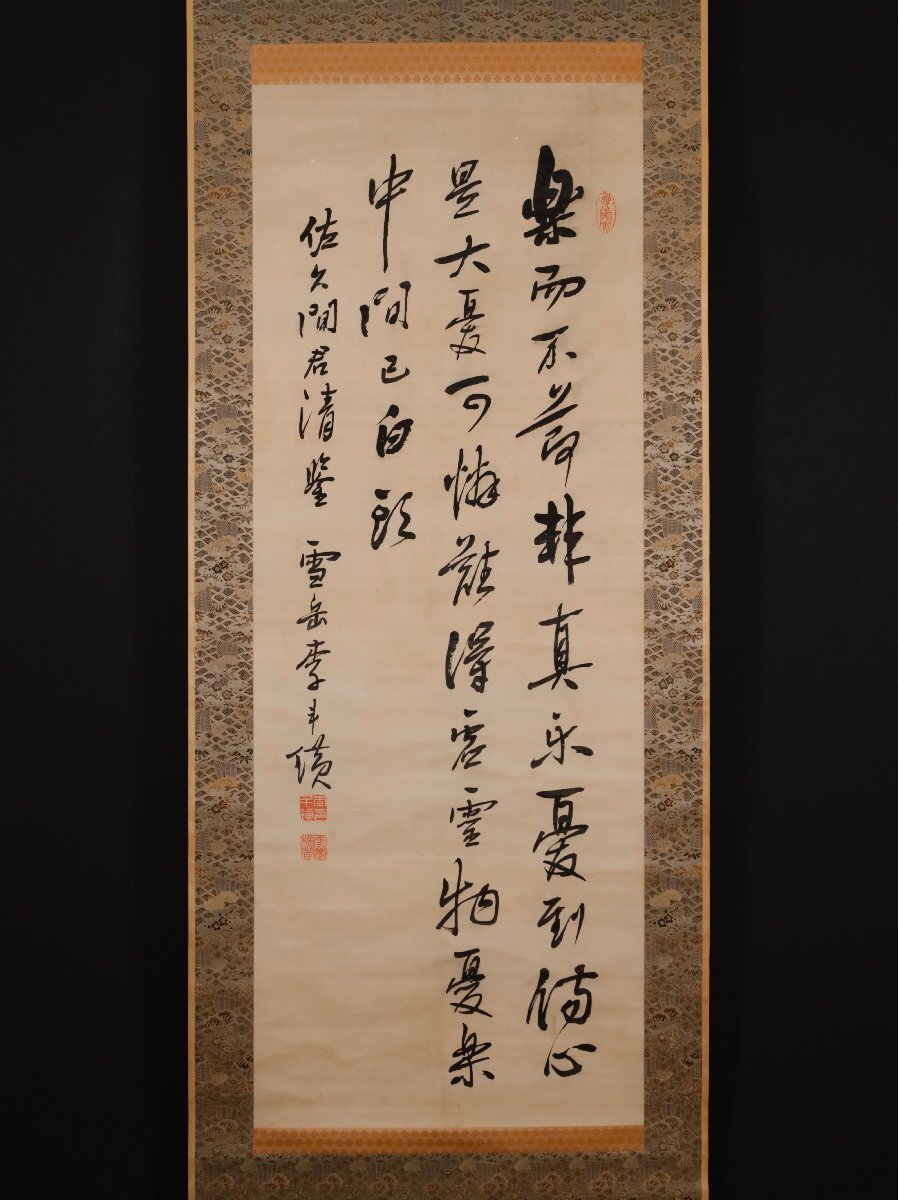 樂而不荷非真樂憂到傷心
是大憂可憐難得虛靈物憂樂
中間已白頭
佐久間君清鑒 雪岳李斗璜